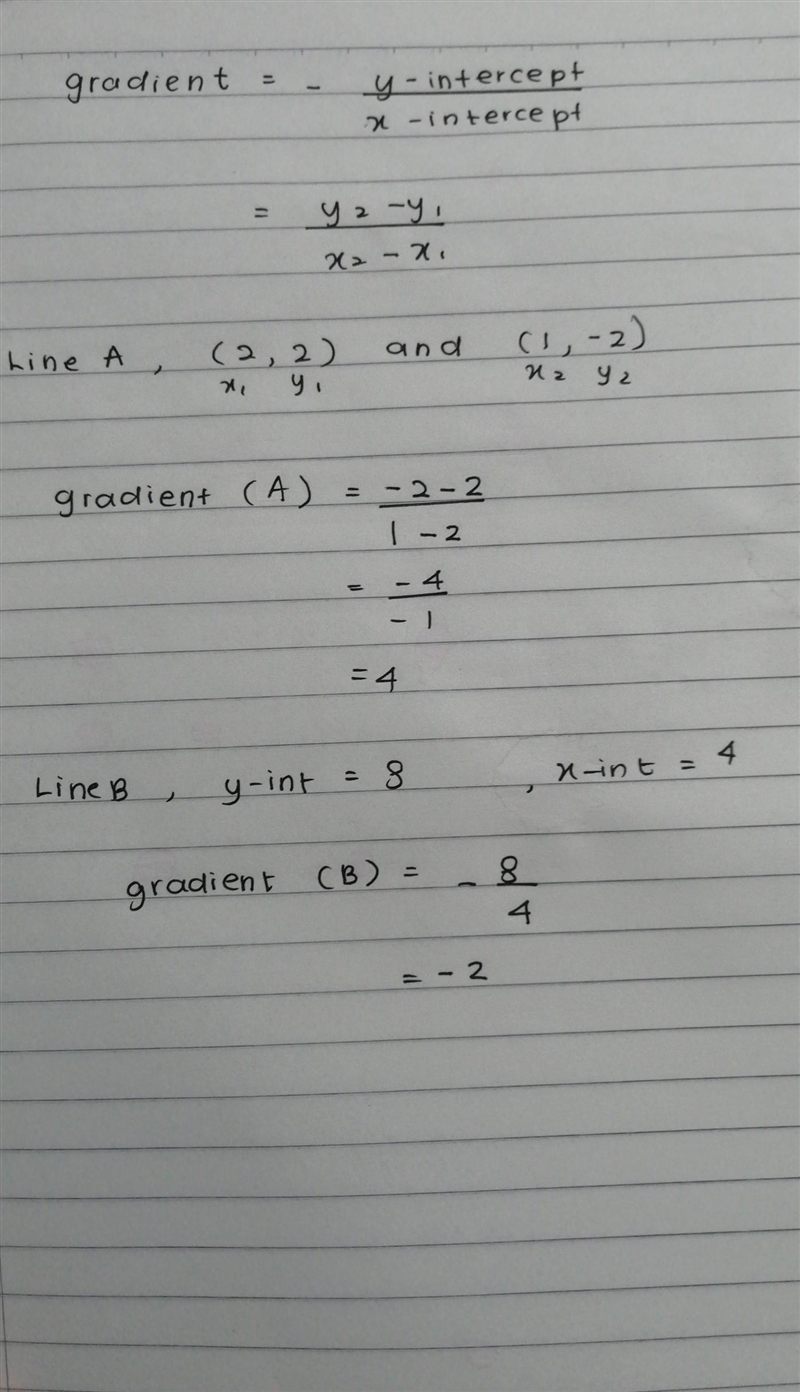 gradient = - y-intercept / x-intercept
= y₂ - y₁ / x₂ - x₁
Line A , (2, 2) and (1, -2)
x₁ y₁ x₂ y₂
gradient (A) = -2-2 / 1-2
= -4 / -1
= 4
Line B , y-int = 8 , x-int = 4
gradient (B) = - 8 / 4
= -2